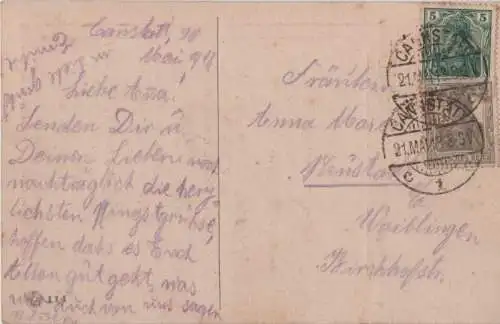 Cannstatt, 20
Mai 918
Liebe Anna!
Senden Dir u
Deinen Lieben noch
nachträglich die herz
lichsten Pfingstgrüsse,
hoffen dass es Euch
Allen gut geht, was
wir Euch von uns sagen
Fräulein
Anna
Neustadt
Waiblingen
Kirchhofstr.
5
CANNSTATT
21.MAI.18
CANNSTATT
21.MAI.18